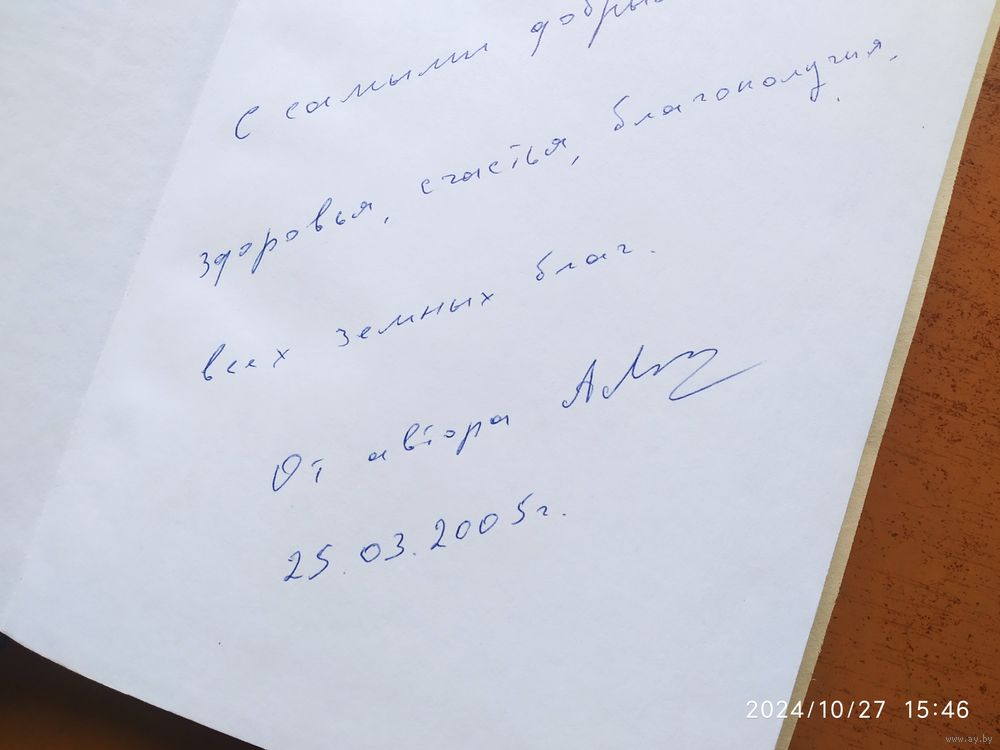 С самыми
здоровья, счастья, благополучия,
всех земных благ.
От автора
25.03.2005г.
2024/10/27 15:46
www.ay.by